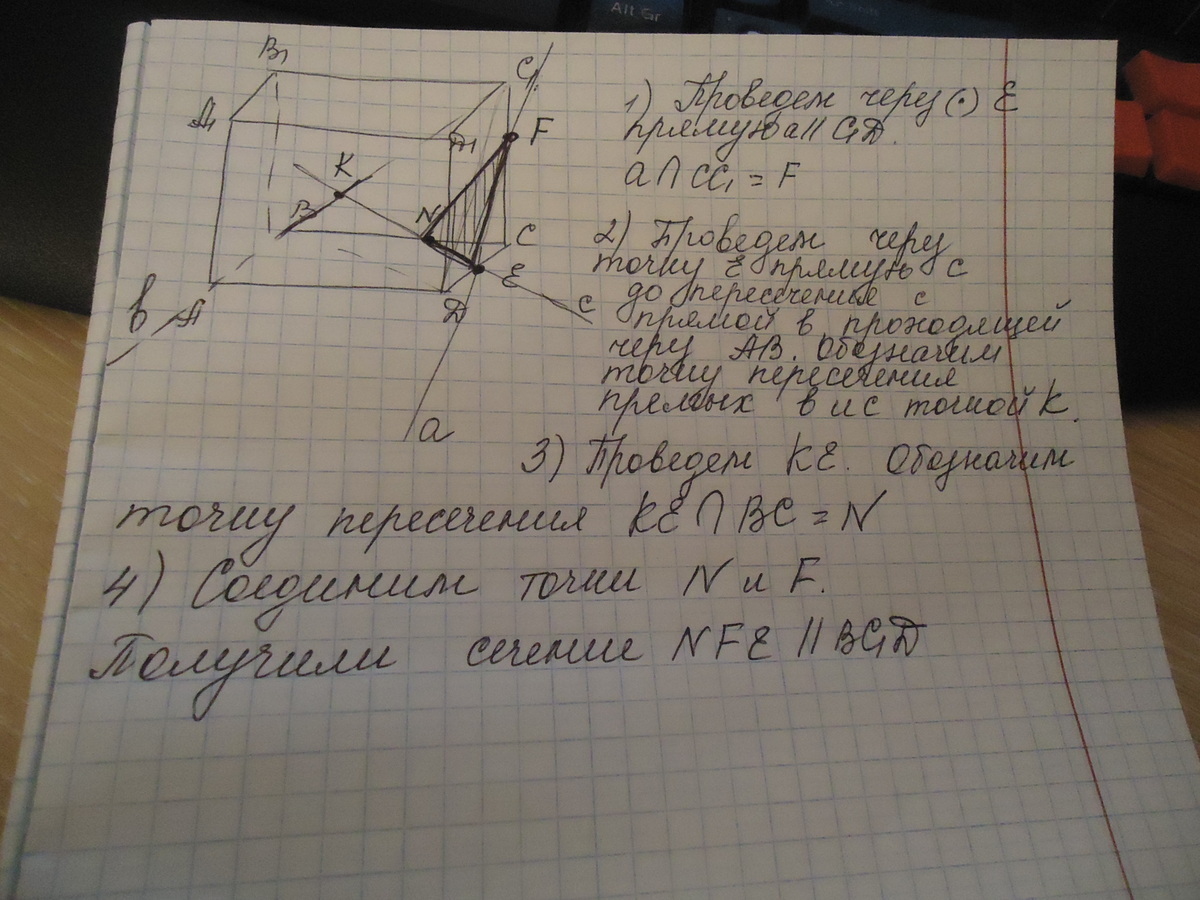 Alt Gr
B₁
C₁
A₁
D₁
F
K
B
N
C
E
c
D
A
в
a
1) Проведем через (·) E
прямую a ∥ C₁D.
a ∩ CC₁ = F
2) Проведем через
точку E прямую c
до пересечение с
прямой в проходящей
черу AB. Обозначим
точку пересечения
прямых в и с точкой K.
3) Проведем KE. Обозначим
точку пересечения KE ∩ BC = N
4) Соединим точки N и F.
Получили сечение NFE ∥ BC₁D